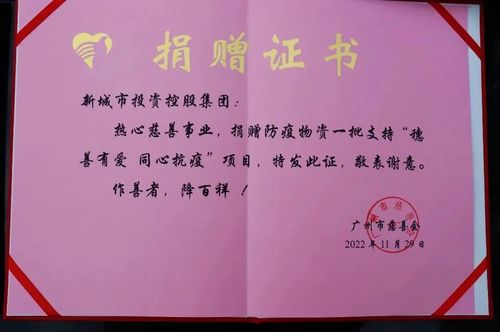 捐赠证书
新城市投资控股集团：
热心慈善事业，捐赠防疫物资一批支持“穗
善有爱 同心抗疫”项目，特发此证，敬表谢意。
作善者，降百祥！
广州市慈善会
2022年11月29日